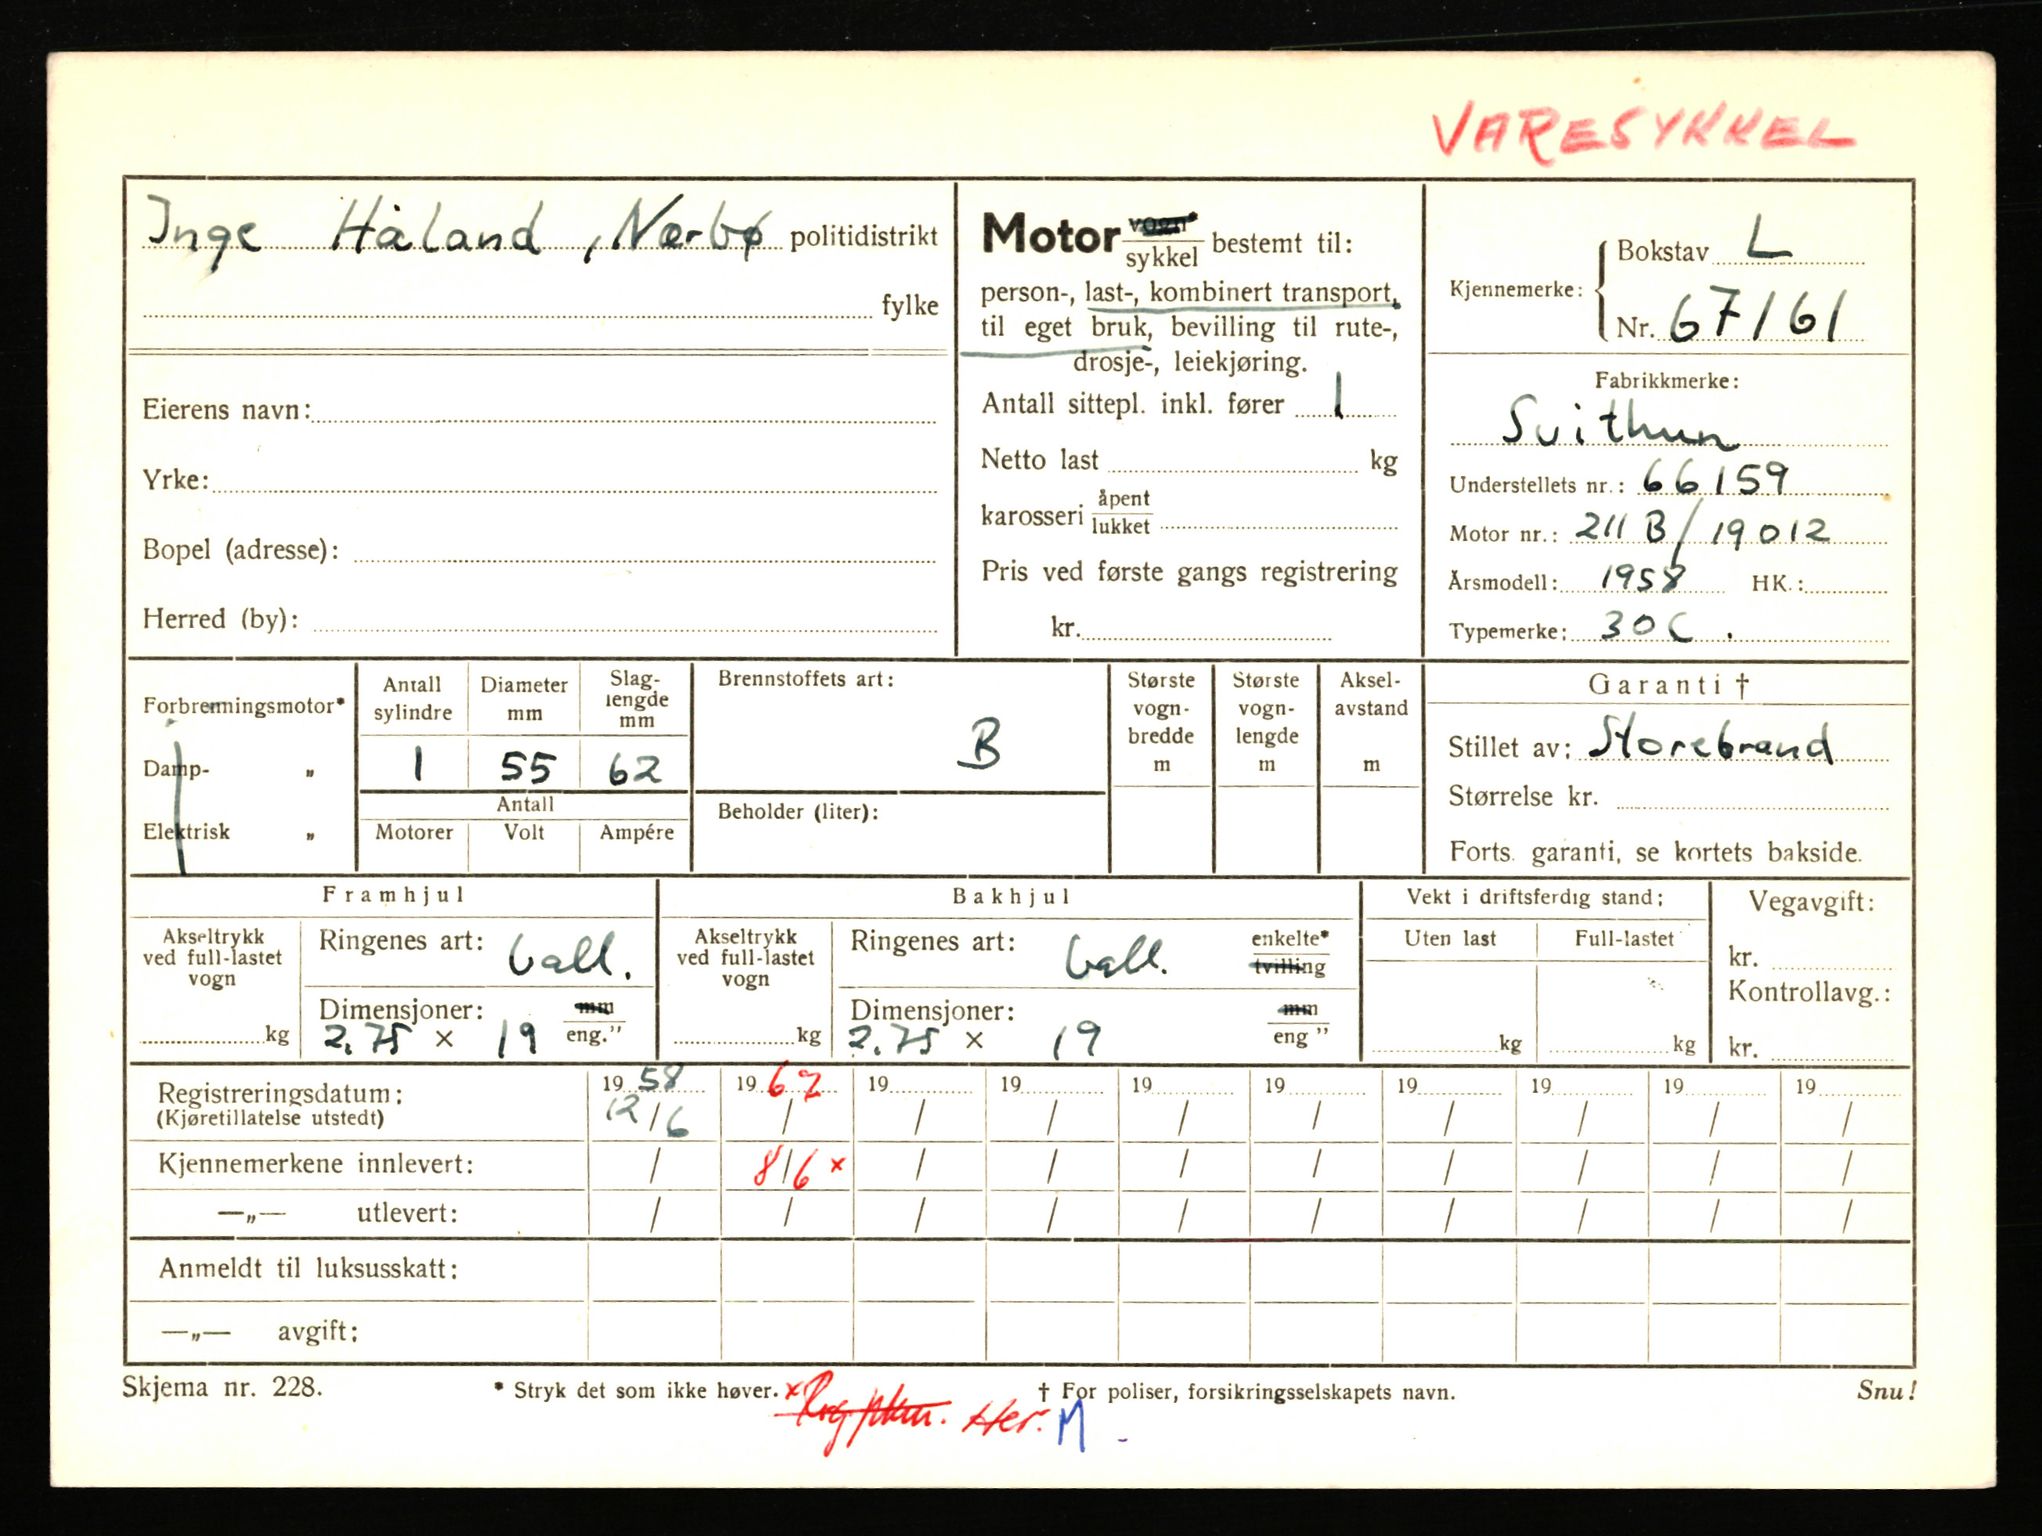 VARESYKKEL
Inge Håland, Nærbø politidistrikt
fylke
Eierens navn:
Yrke:
Bopel (adresse):
Herred (by):
Motor vogn* sykkel bestemt til:
person-, last-, kombinert transport,
til eget bruk, bevilling til rute-,
drosje-, leiekjøring.
Antall sittepl. inkl. fører 1
Netto last kg
karosseri åpent lukket
Pris ved første gangs registrering
kr.
Kjennemerke: Bokstav L
Nr. 67161
Fabrikkmerke:
Svithun
Understellets nr.: 66159
Motor nr.: 211 B/19012
Årsmodell: 1958 HK.:
Typemerke: 30 C.
Forbrenningsmotor*
Damp- „
Elektrisk „
Antall sylindre
Diameter mm
Slag- lengde mm
1 55 62
Antall
Motorer Volt Ampére
Brennstoffets art:
B
Beholder (liter):
Største vogn- bredde m
Største vogn- lengde m
Aksel- avstand m
Garanti †
Stillet av: Storebrand
Størrelse kr.
Forts. garanti, se kortets bakside.
Framhjul
Akseltrykk ved full-lastet vogn
kg
Ringenes art: ball.
Dimensjoner: mm
2.75 × 19 eng."
Bakhjul
Akseltrykk ved full-lastet vogn
kg
Ringenes art: ball. enkelte* tvilling
Dimensjoner: mm
2.75 × 19 eng "
Vekt i driftsferdig stand:
Uten last Full-lastet
kg kg
Vegavgift:
kr.
Kontrollavg.:
kr.
Registreringsdatum: 19 58 19 67 19 19 19 19 19 19 19 19
(Kjøretillatelse utstedt) 12/6 / / / / / / / / /
Kjennemerkene innlevert: / 8/6 × / / / / / / / /
—„— utlevert: / / / / / / / / / /
Anmeldt til luksusskatt:
—„— avgift:
Skjema nr. 228. * Stryk det som ikke høver. † For poliser, forsikringsselskapets navn. Snu!
× Her. M